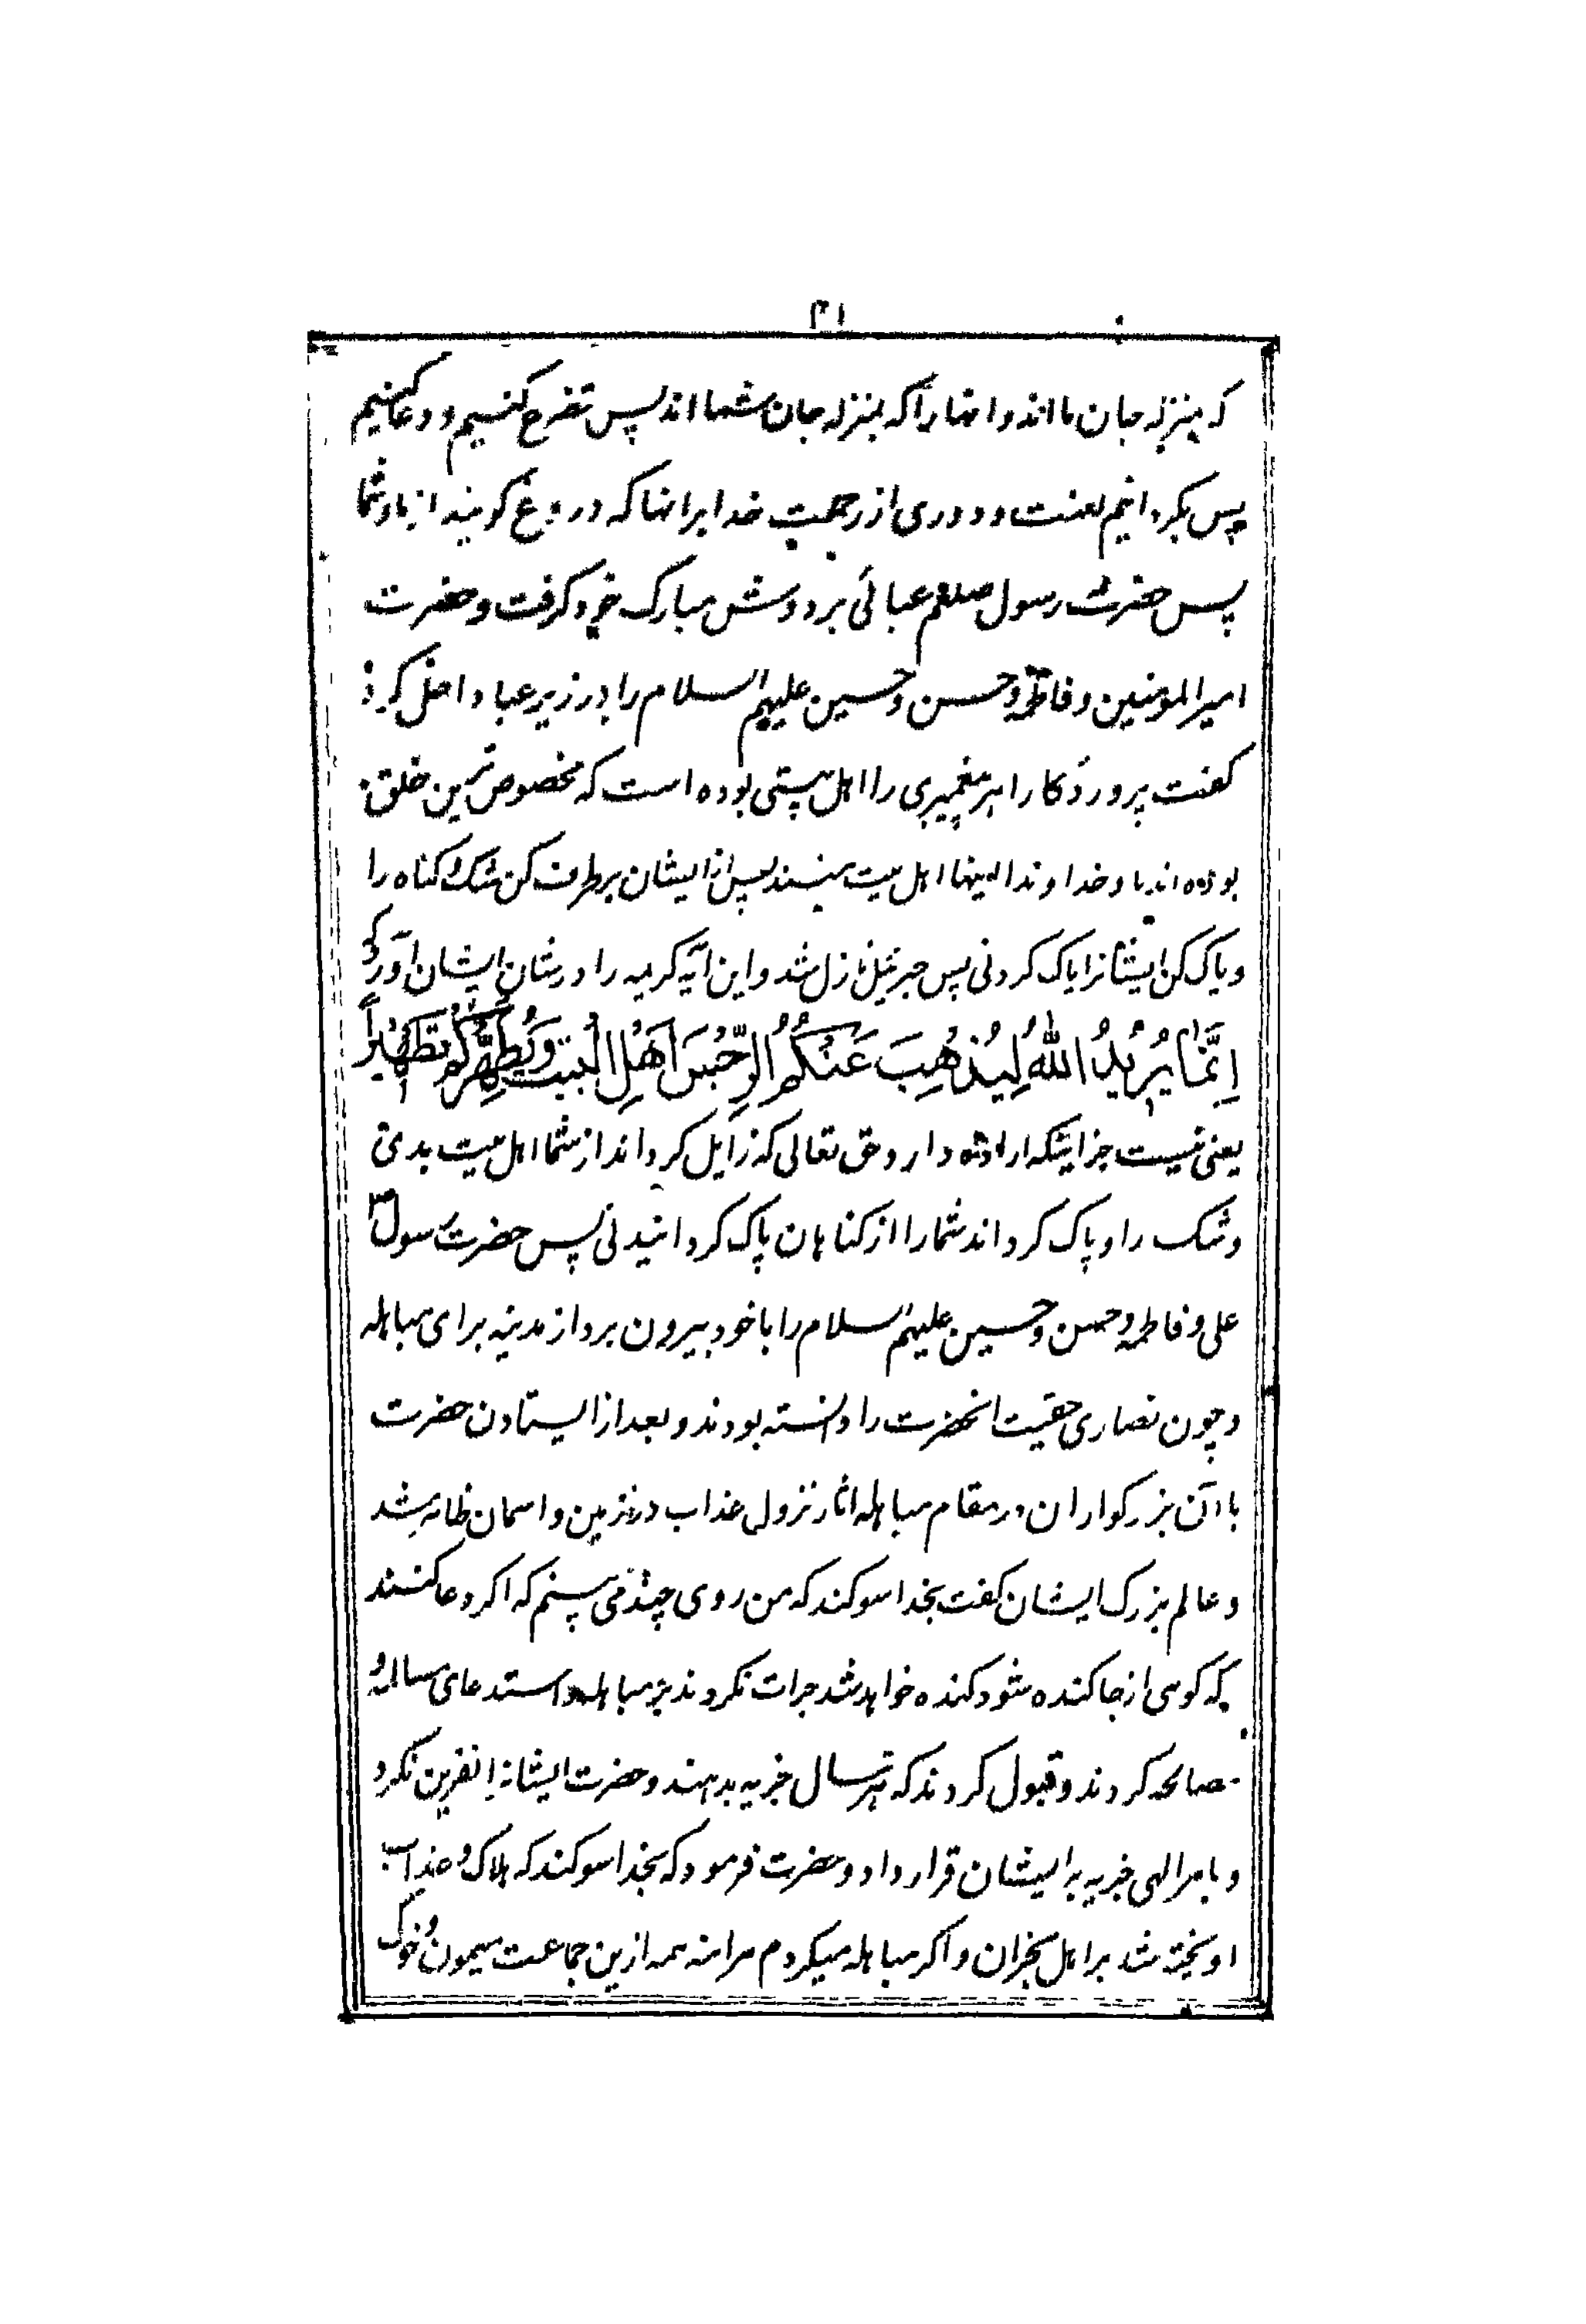 ۲۱
که بمنزله جان ما اند و انها را که بمنزله جان شما اند پس تضرع کنیم و دعا کنیم
پس بگردانیم لعنت و دوری از رحمت خدا برانها که دروغ گویند از ما و شما
پس حضرت رسول صلعم عبائی بر دوش مبارک خود گرفت و حضرت
امیر المومنین و فاطمه و حسن و حسین علیهم السلام را در زیر عبا داخل کرد و
گفت پروردگارا هر پیغمبری را اهل بیتی بوده است که مخصوص ترین خلق
بوده اند باو خداوندا اینها اهل بیت منند پس از ایشان برطرف کن شک و گناه را
و پاک کن ایشانرا پاک کردنی پس جبرئیل نازل شد و این آیه کریمه را در شان ایشان آورد که
اِنَّمَا يُرِيْدُ اللهُ لِيُذْهِبَ عَنْكُمُ الرِّجْسَ اَهْلَ الْبَيْتِ وَيُطَهِّرَكُمْ تَطْهِيْراً
یعنی نیست جز اینکه اراده دارد حق تعالی که زایل گرداند از شما اهل بیت بدی
و شک را و پاک گرداند شما را از گناهان پاک گردانیدنی پس حضرت رسول ص
علی و فاطمه و حسن و حسین علیهم السلام را با خود بیرون برد از مدینه برای مباهله
و چون نصاری حقیت انحضرت را دانسته بودند و بعد از ایستادن حضرت
با آن بزرگواران در مقام مباهله اثار نزول عذاب در زمین و اسمان ظاهر شد
و عالم بزرگ ایشان گفت بخدا سوگند که من روی چند می بینم که اگر دعا کنند
که کوهی از جا کنده شود کنده خواهد شد جرات نکردند بر مباهله و استدعای مسالمه و
مصالحه کردند و قبول کردند که هر سال جزیه بدهند و حضرت ایشانرا نفرین نکرد
و بامر الهی جزیه بر ایشان قرار داد و حضرت فرمود که بخدا سوگند که هلاک و عذاب
اویخته شد بر اهل نجران و اگر مباهله میکردم هر اینه همه ازین جماعت میمون و خوک